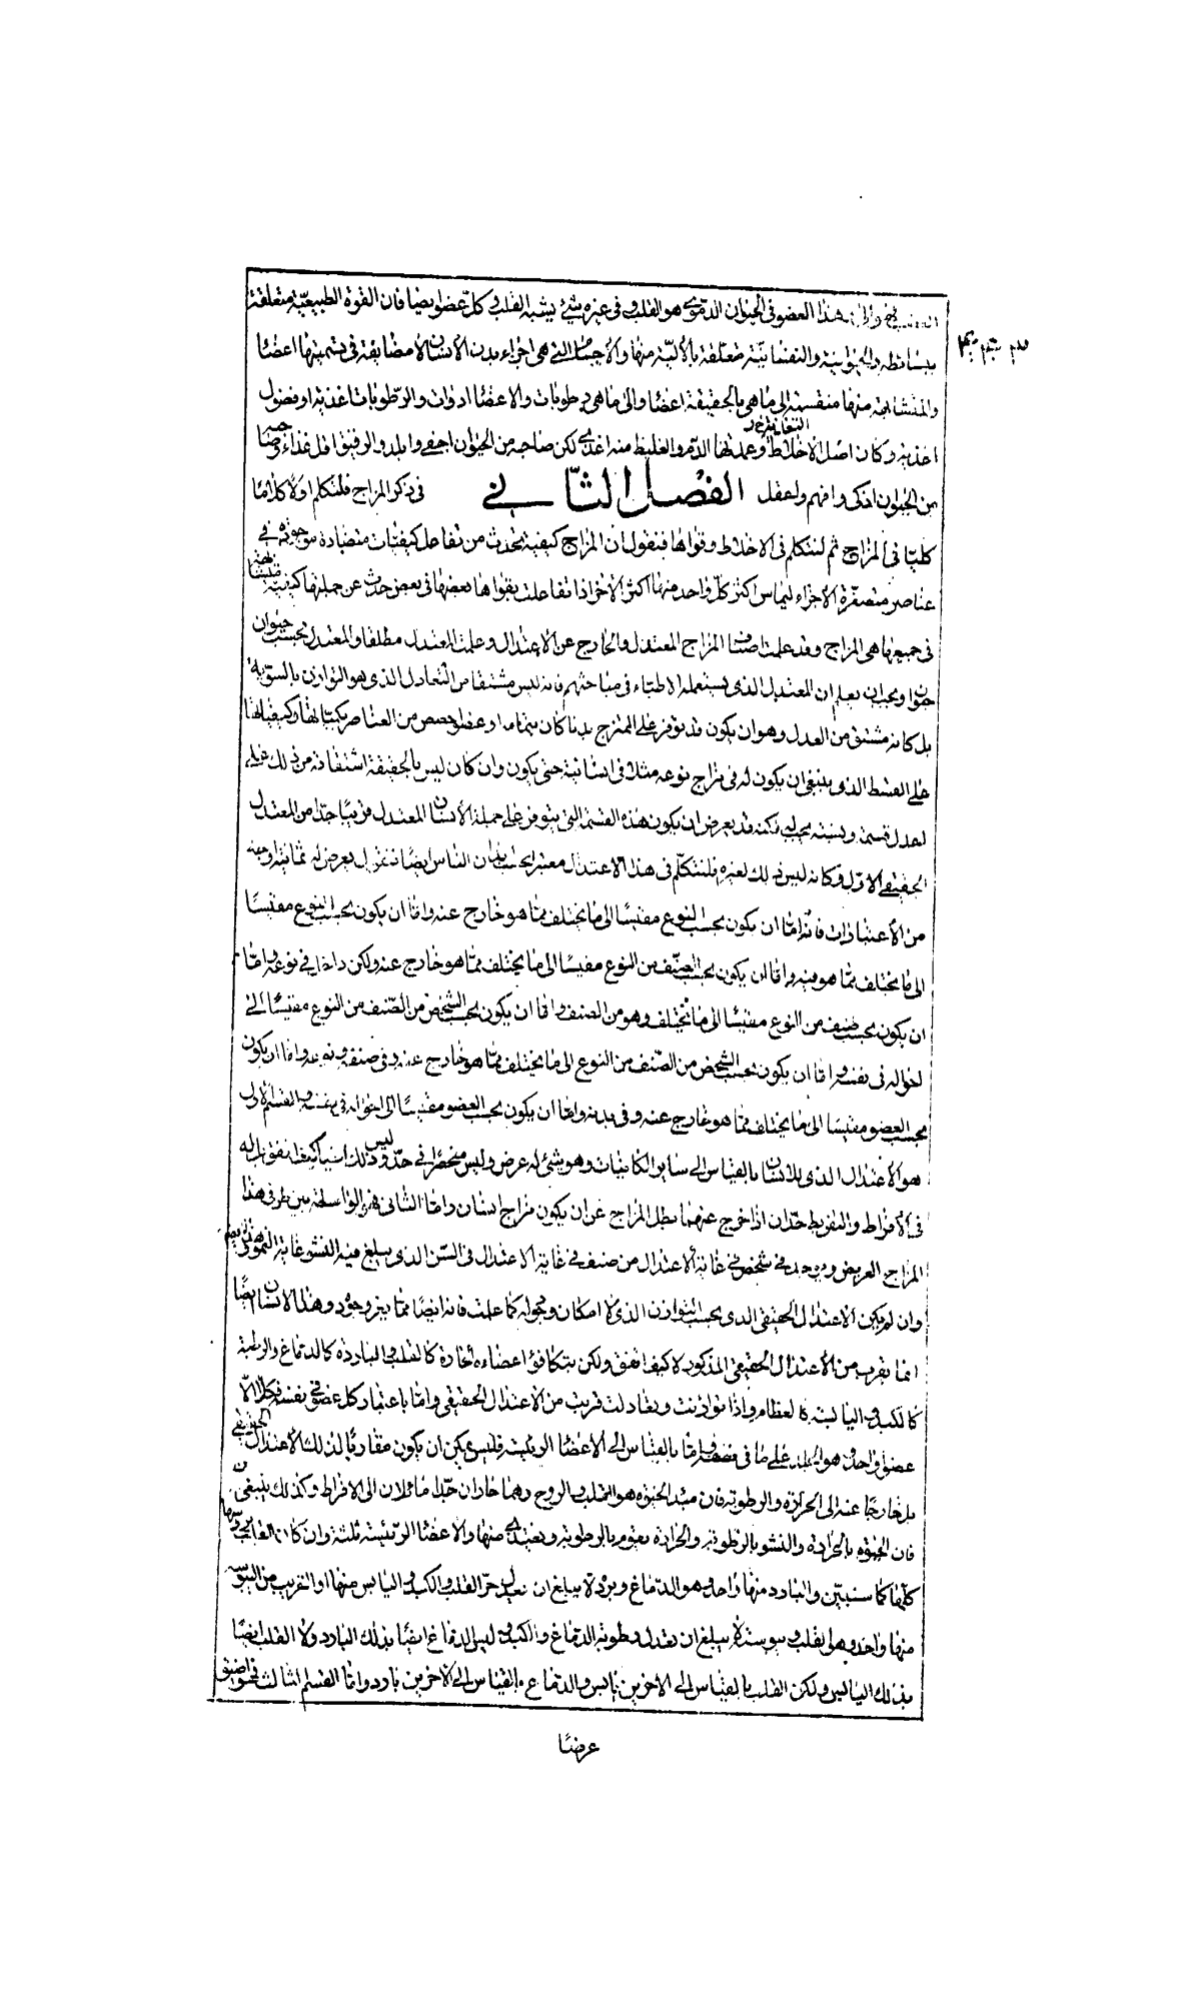 هذا العضو فى الحيوان الدموى هو القلب و فى غيره شئ يشبه القلب و كل عضو ايضا فان القوة الطبيعية متعلقة
ببسائطه والحيوانية والنفسانية متعلقة بالآلية منها والاجسام التى هى اجزاء بدن الانسان لا مضايقة فى تسميتها اعضا
والمتشابهة منها منقسمة الى ما هى بالحقيقة اعضا والى ما هى رطوبات والاعضا ادوات والرطوبات اغذية او فضول
اغذية وكان اصل الاخلاط وعمدتها الدم والغليظ منه اغذى لكن صاحبه من الحيوان اجفى وابلد والرقيق اقل غذاء وصاحبه
من الحيوان اذكى وافهم واعقل الفصل الثانى فى ذكر المزاج فلنتكلم اولا كلاما
كليا فى المزاج ثم لنتكلم فى الاخلاط وقواها فنقول ان المزاج كيفية تحدث من تفاعل كيفيات متضادة موجودة فى
عناصر متصغرة الاجزاء ليماس اكثر كل واحد منها اكثر الاخر اذا تفاعلت بقواها بعضها فى بعض حدث عن جملتها كيفية متشابهة
فى جميعها هى المزاج وقد علمت اصناف المزاج المعتدل والخارج عن الاعتدال وعلمت المعتدل مطلقا والمعتدل بحسب حيوان
حيوان ويجب ان يعلم ان المعتدل الذى يستعمله الاطباء فى مباحثهم فانه ليس مشتقا من التعادل الذى هو التوازن بالسوية
بل كانه مشتق من العدل وهو ان يكون قد توفر على الممتزج بدنا كان بتمامه او عضوا حصص من العناصر بكمياتها وكيفياتها
على القسط الذى ينبغى ان يكون له فى مزاج نوعه مثلا فى انسانية حتى يكون وان كان ليس بالحقيقة اشتقاقه من ذلك على
اعدل قسمة ونسبة بحسبه لكنه قد يعرض ان يكون هذه القسمة التى يتوفر على جملة الانسان المعتدل قريبا جدا من المعتدل
الحقيقى الاول وكانه ليس ذلك لغيره فلنتكلم فى هذا الاعتدال معتبرا بحسب ابدان الناس ايضا فنقول يعرض له ثمانية اوجه
من الاعتبارات فانه اما ان يكون بحسب النوع مقيسا الى ما يختلف مما هو خارج عنه واما ان يكون بحسب النوع مقيسا
الى ما يختلف مما هو فيه واما ان يكون بحسب الصنف من النوع مقيسا الى ما يختلف مما هو خارج عنه ولكن داخل فى نوعه واما
ان يكون بحسب صنف من النوع مقيسا الى ما يختلف وهو من الصنف واما ان يكون بحسب الشخص من الصنف من النوع مقيسا الى
احواله فى نفسه واما ان يكون بحسب الشخص من الصنف من النوع الى ما يختلف مما هو خارج عنه وفى صنفه ونوعه واما ان يكون
بحسب العضو مقيسا الى ما يختلف مما هو خارج عنه وفى بدنه واما ان يكون بحسب العضو مقيسا الى احواله فى نفسه والقسم الاول
هو الاعتدال الذى للانسان بالقياس الى سائر الكائنات وهو شئ له عرض وليس منحصرا فى حد وليس ذلك ايضا كيف اتفق بل له
فى الافراط والتفريط حدان اذا خرج عنهما بطل المزاج عن ان يكون مزاج انسان واما الثانى فهو الواسطة بين طرفى هذا
المزاج العريض ويوجد فى شخص فى غاية الاعتدال من صنف فى غاية الاعتدال فى السن الذى يبلغ فيه النشو غاية النمو
وان لم يكن الاعتدال الحقيقى الذى بحسب التوازن الذى لا امكان وجوده كما علمت فانه ايضا مما يعز وجوده وهذا الانسان ايضا
انما يقرب من الاعتدال الحقيقى المذكور لا كيف اتفق ولكن بتكافؤ اعضاءه الحارة كالقلب والباردة كالدماغ والرطبة
كالكبد واليابسة كالعظام واذا توازنت وتعادلت قربت من الاعتدال الحقيقى واما باعتبار كل عضو فى نفسه فكلا الا
عضوا واحدا وهو الجلد على ما فى فصله واما بالقياس الى الاعضا الرئيسة فليس يمكن ان يكون مقاربا لذلك الاعتدال الحقيقى
بل خارجا عنه الى الحرارة والرطوبة فان مبدا الحيوة هو القلب والروح وهما حاران جدا مائلان الى الافراط وكذلك ينبغى
فان الحيوة بالحرارة والنشو بالرطوبة والحرارة يقوم بالرطوبة ويغتذى منها والاعضا الرئيسة ثلثة وان كان القلب رئيسها
كلها كما سنبين والبارد منها واحد وهو الدماغ وبرده لا يبلغ ان يعدل حر القلب والكبد واليابس منها او القريب من اليبوسة
منها واحد وهو القلب ويبوسته لا يبلغ ان تعدل رطوبة الدماغ والكبد وليس الدماغ ايضا بذلك البارد ولا القلب ايضا
بذلك اليابس ولكن القلب بالقياس الى الاخرين يابس والدماغ بالقياس الى الاخرين بارد واما القسم الثالث فهو اضيق
عرضا